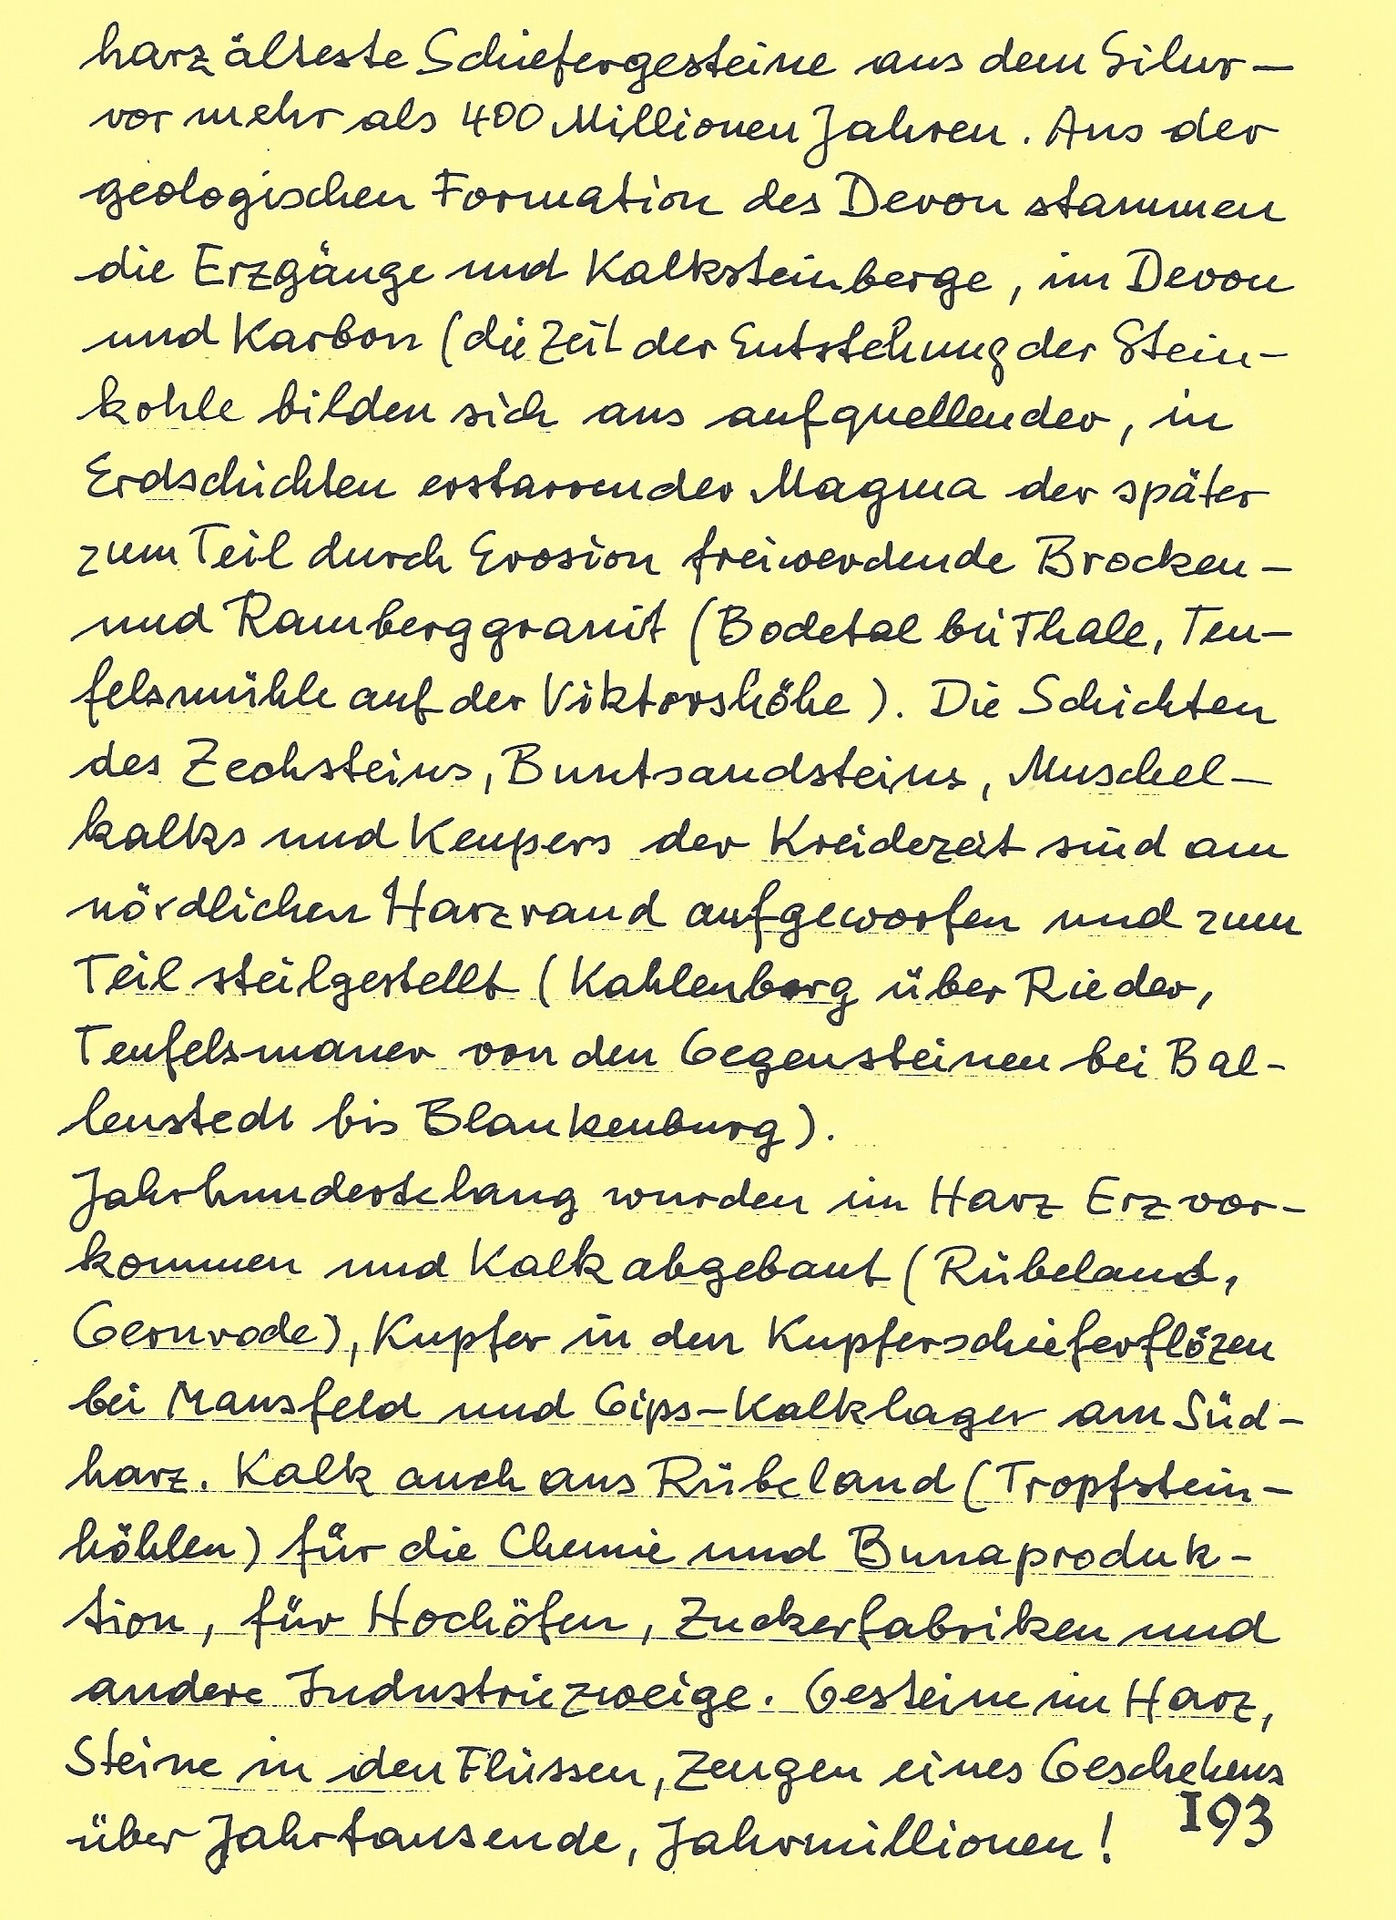 harz älteste Schiefergesteine aus dem Silur –
vor mehr als 400 Millionen Jahren. Aus der
geologischen Formation des Devon stammen
die Erzgänge und Kalksteinberge, im Devon
und Karbon (die Zeit der Entstehung der Stein-
kohle bilden sich aus aufquellender, in
Erdschichten erstarrender Magma der später
zum Teil durch Erosion freiwerdende Brocken-
und Ramberggranit (Bodetal bei Thale, Teu-
felsmühle auf der Viktorshöhe). Die Schichten
des Zechsteins, Buntsandsteins, Muschel-
kalks und Keupers der Kreidezeit sind am
nördlichen Harzrand aufgeworfen und zum
Teil steilgestellt (Kahlenberg über Rieder,
Teufelsmauer von den Gegensteinen bei Bal-
lenstedt bis Blankenburg).
Jahrhundertelang wurden im Harz Erzvor-
kommen und Kalk abgebaut (Rübeland,
Gernrode), Kupfer in den Kupferschieferflözen
bei Mansfeld und Gips-Kalklager am Süd-
harz. Kalk auch aus Rübeland (Tropfstein-
höhlen) für die Chemie und Bunaproduk-
tion, für Hochöfen, Zuckerfabriken und
andere Industriezweige. Gesteine im Harz,
Steine in den Flüssen, Zeugen eines Geschehens
über Jahrtausende, Jahrmillionen!
193